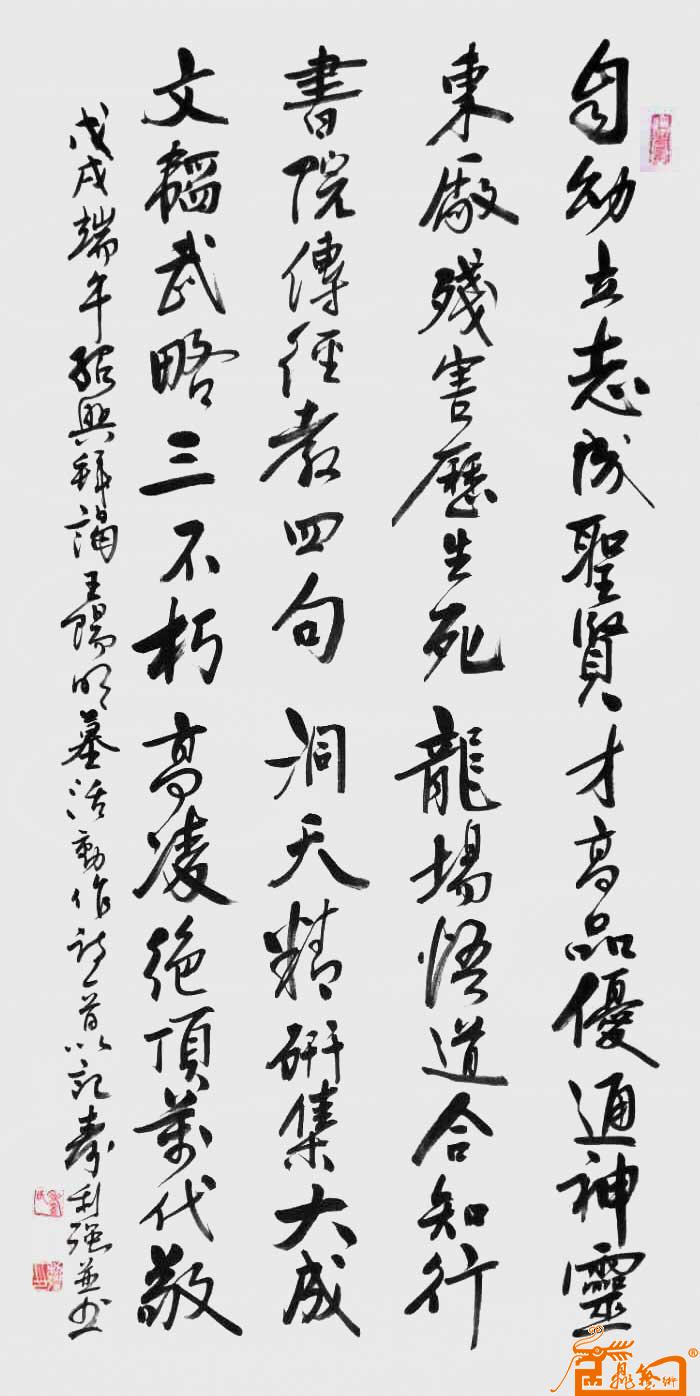 自幼立志成聖賢才高品優通神靈
東廠殘害歷生死龍場悟道合知行
書院傳徑教四句洞天精研集大成
文韜武略三不朽高凌絕頂萬代敬
戊戌端午紹興拜謁王陽明墓活動作詩一首以記壽利強並書